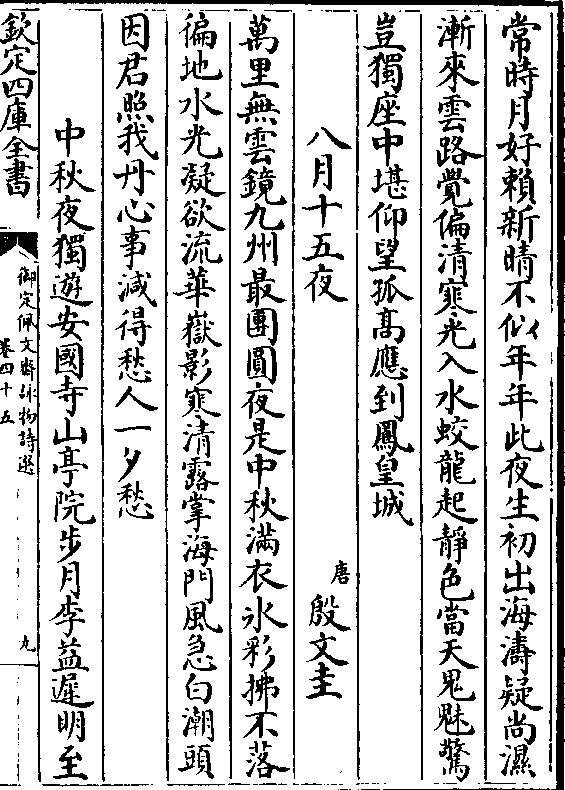 常時月好賴新晴不似年年此夜生初出海濤疑尚濕
漸來雲路覺偏清寒光入水蛟龍起靜色當天鬼魅驚
豈獨座中堪仰望孤髙應到鳳皇城
八月十五夜　唐殷文圭
萬里無雲鏡九州最團圓夜是中秋滿衣氷彩拂不落
徧地水光凝欲流華嶽影寒清露掌海門風急白潮頭
因君照我丹心事減得愁人一夕愁
中秋夜獨遊安國寺山亭院步月李益遲明至
欽定四庫全書
御定佩文齋詠物詩選
卷四十五
九